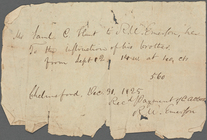 Mr Saml C. Hunt to R. W. Emerson, Dr.
To the instruction of his brother
from Sept 12
5.60
Chelmsford, Dec. 31. 1825
Recd Payment
R. W. Emerson